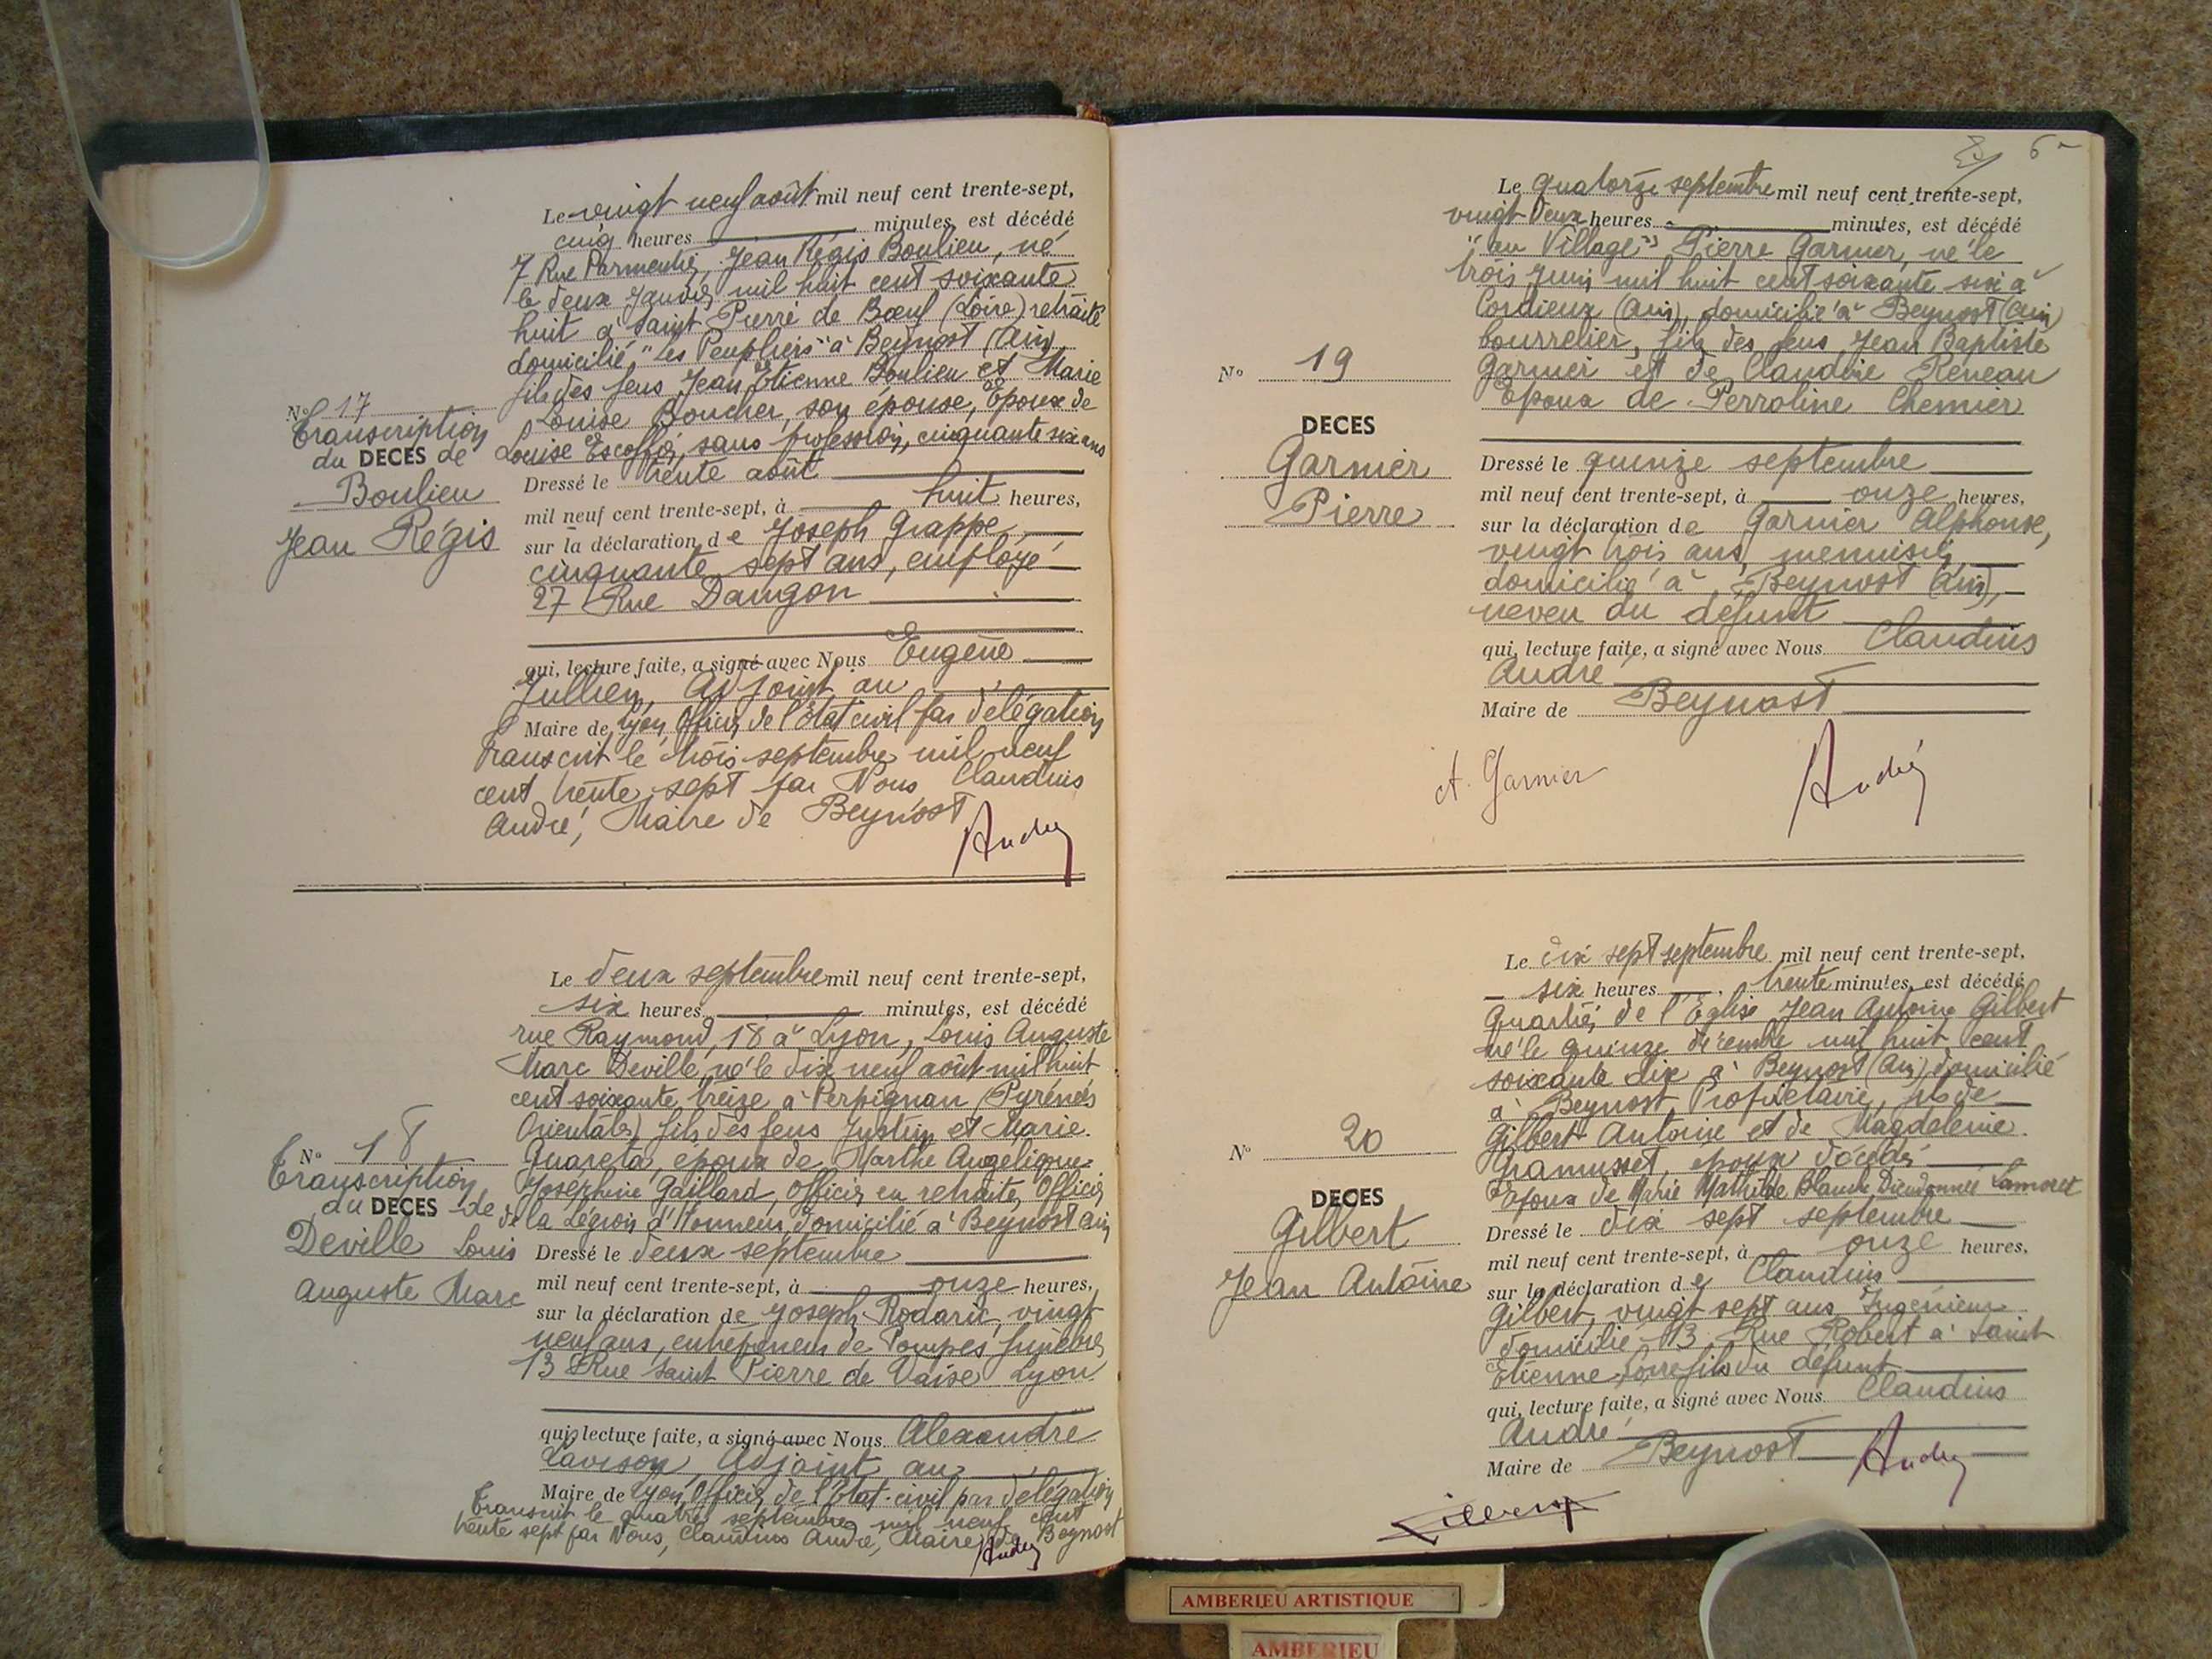 Le vingt neuf août mil neuf cent trente-sept,
cinq heures minutes, est décédé
7 Rue Parmentier, Jean Régis Boulieu, né
le deux Janvier mil huit cent soixante
huit à Saint Pierre de Bœuf (Loire) retraité
domicilié "Les Peupliers" à Beynost (Ain)
fils des feus Jean Etienne Boulieu et Marie
Louise Boucher, son épouse, Epoux de
Louise Escoffier, sans profession, cinquante six ans
Nº 17
Transcription
du DECES de
Boulieu
Jean Régis
Dressé le trente août
mil neuf cent trente-sept, à huit heures,
sur la déclaration de Joseph Grappe,
cinquante sept ans, employé
27 Rue Dangon
qui, lecture faite, a signé avec Nous Eugène
Jullien, Adjoint au
Maire de Lyon, Officier de l'état civil par délégation
Transcrit le trois septembre mil neuf
cent trente sept par Nous Claudius
André, Maire de Beynost
André
Le deux septembre mil neuf cent trente-sept,
six heures minutes, est décédé
rue Raymond, 18 à Lyon, Louis Auguste
Marc Deville, né le dix neuf août mil huit
cent soixante treize à Perpignan (Pyrénées
Orientales) fils des feus Justin et Marie
Quareta, époux de Marthe Angélique
Joséphine Gaillard, officier en retraite, Officier
de la Légion d'Honneur, domicilié à Beynost Ain
Nº 18
Transcription
du DECES de
Deville Louis
Auguste Marc
Dressé le deux septembre
mil neuf cent trente-sept, à onze heures,
sur la déclaration de Joseph Rodaric, vingt
neuf ans, entrepreneur de Pompes funèbres
13 Rue Saint Pierre de Vaise Lyon
qui, lecture faite, a signé avec Nous Alexandre
Lavison, Adjoint au
Maire de Lyon, Officier de l'état-civil par délégation
Transcrit le quatre septembre mil neuf cent
trente sept par Nous, Claudius André, Maire de Beynost
André
6
Le quatorze septembre mil neuf cent trente-sept,
vingt deux heures minutes, est décédé
"au Village" Pierre Garnier, né le
trois juin mil huit cent soixante six à
Cordieux (Ain), domicilié à Beynost (Ain)
bourrelier, fils des feus Jean Baptiste
Garnier et de Claudine Reneau
Epoux de Perroline Chemier
Nº 19
DECES
Garnier
Pierre
Dressé le quinze septembre
mil neuf cent trente-sept, à onze heures,
sur la déclaration de Garnier Alphonse,
vingt trois ans, menuisier,
domicilié à Beynost (Ain),
neveu du défunt
qui, lecture faite, a signé avec Nous Claudius
André
Maire de Beynost
A. Garnier
André
Le dix sept septembre mil neuf cent trente-sept,
six heures trente minutes, est décédé
Quartier de l'Eglise Jean Antoine Gilbert
né le quinze décembre mil huit cent
soixante dix à Beynost (Ain) domicilié
à Beynost Propriétaire, fils de
Gilbert Antoine et de Magdeleine
Gramusset, epoux décédés
Epoux de Marie Mathilde Claude Dieudonnée Lamoret
Nº 20
DECES
Gilbert
Jean Antoine
Dressé le dix sept septembre
mil neuf cent trente-sept, à onze heures,
sur la déclaration de Claudius
Gilbert, vingt sept ans Ingénieur
domicilié 13, Rue Robert à Saint
Etienne, Loire fils du défunt
qui, lecture faite, a signé avec Nous Claudius
André
Maire de Beynost
André
Gilbert
AMBERIEU ARTISTIQUE
AMBERIEU